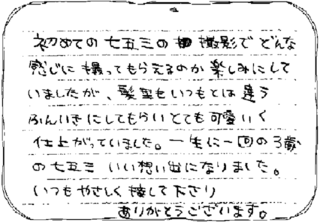 初めての七五三の撮影でどんな
感じに撮ってもらえるのか楽しみにして
いましたが、髪型もいつもとは違う
ふんいきにしてもらいとても可愛いく
仕上がっていました。一生に一回の3歳
の七五三いい想い出になりました。
いつもやさしく接して下さり
ありがとうございます。